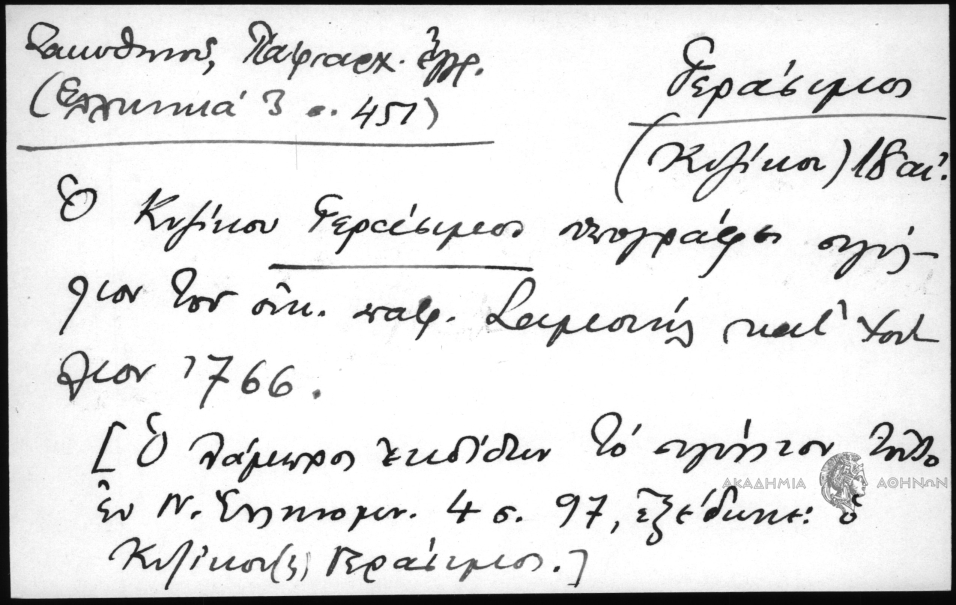 Πατριαρχ. ἔγγρ.
(Ἑλληνικά 3 σ. 451)
Γεράσιμος
(Κυζίκου) 18 αἰ.
Ὁ Κυζίκου Γεράσιμος ὑπογράφει σιγίλ-
λιον τοῦ οἰκ. πατρ. Σαμουήλ κατ' Ἰού-
λιον 1766.
[Ὁ Λάμπρος ἐκδίδων τό σιγίλλιον τοῦτο
ἐν Ν. Ἑλληνομν. 4 σ. 97, ἐξέδωκε: ὁ
Κυζίκου(ς) Γεράσιμος.]
ΑΚΑΔΗΜΙΑ ΑΘΗΝΩΝ